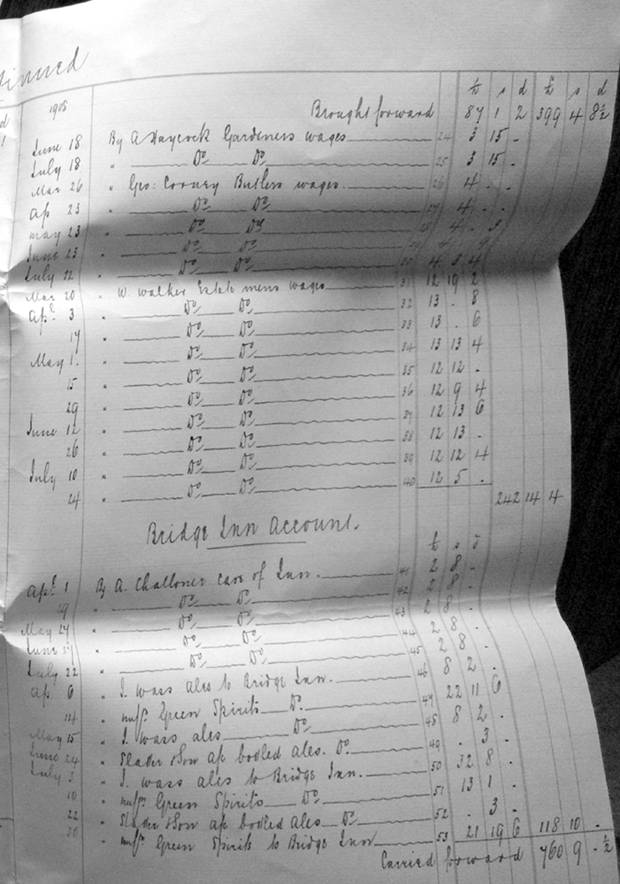 tinued
£ s d £ s d
1905 Brought forward 87 1 2 399 4 8½
June 18 By A Haycock Gardeners wages 24 3 15 -
July 18 " Do Do 25 3 15 -
Mar 26 " Geo: Corney Butlers wages 26 4 - -
Ap 23 " Do Do 27 4 - -
May 23 " Do Do 28 4 - -
June 23 " Do Do 29 4
July 22 " Do Do 30 4 3 4
Mar 20 " W. Walker Estate mens wages 31 12 19 2
Apl 3 " Do Do 32 13 - 8
17 " Do Do 33 13 - 6
May 1 " Do Do 34 13 13 4
15 " Do Do 35 12 12 -
29 " Do Do 36 12 9 4
June 12 " Do Do 37 12 13 6
26 " Do Do 38 12 13 -
July 10 " Do Do 39 12 12 4
24 " Do Do 40 12 5 -
242 14 4
Bridge Inn Account.
£ s d
Apl 1 By A. Challoner care of Inn. 41 2 8 -
29 " Do Do 42 2 8 -
May 27 " Do Do 43 2 8 -
June " Do Do 44 2 8 -
July 22 " Do Do 45 2 8 -
Ap 6 " J. Wass ales to Bridge Inn. 46 8 2 -
14 " Green Spirits Do 47 22 11 6
May 15 " J. Wass ales Do 48 8 2 -
June 24 " Slater & Son ap bottled ales. Do 49 - 3 -
July 3 " J. Wass ales to Bridge Inn. 50 32 8 -
10 " Green Spirits Do 51 13 1 -
22 " Slater & Son ap bottled ales Do 52 - 3 -
30 " Green Spirits to Bridge Inn 53 21 19 6 118 10 -
Carried forward 760 9 - ½